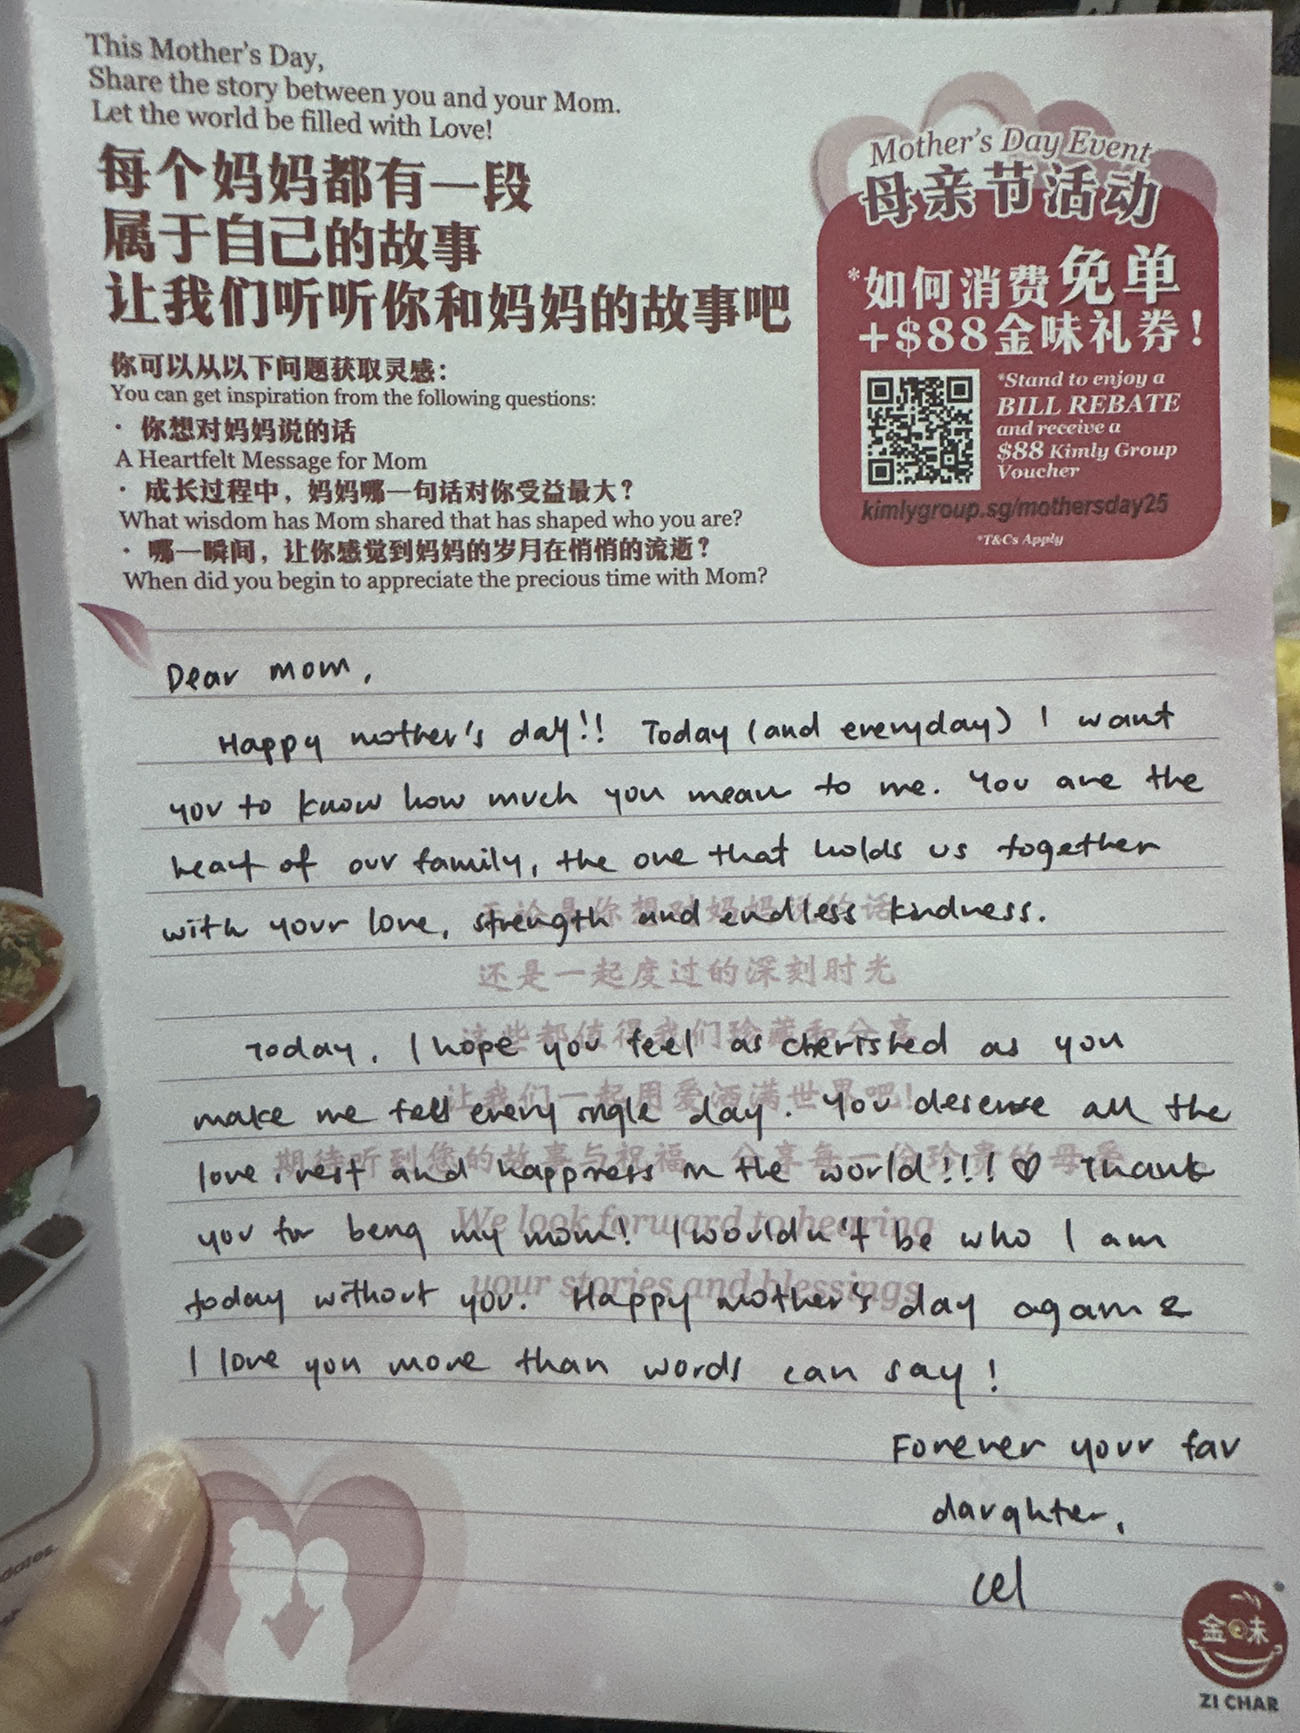 This Mother's Day,
Share the story between you and your Mom.
Let the world be filled with Love!
每个妈妈都有一段
属于自己的故事
让我们听听你和妈妈的故事吧
你可以从以下问题获取灵感：
You can get inspiration from the following questions:
· 你想对妈妈说的话
A Heartfelt Message for Mom
· 成长过程中，妈妈哪一句话对你受益最大？
What wisdom has Mom shared that has shaped who you are?
· 哪一瞬间，让你感觉到妈妈的岁月在悄悄的流逝？
When did you begin to appreciate the precious time with Mom?
Mother's Day Event
母亲节活动
*如何消费免单
+$88金味礼券！
*Stand to enjoy a
BILL REBATE
and receive a
$88 Kimly Group
Voucher
kimlygroup.sg/mothersday25
*T&Cs Apply
Dear mom,
Happy mother's day!! Today (and everyday) I want
you to know how much you mean to me. You are the
heart of our family, the one that holds us together
无论是你想对妈妈说的话
with your love, strength and endless kindness.
还是一起度过的深刻时光
这些都值得我们珍藏和分享
Today, I hope you feel as cherished as you
让我们一起用爱洒满世界吧！
make me fell every single day. You deserve all the
期待听到您的故事与祝福，分享每一份珍贵的母爱
love, rest and happiness in the world!!! ♡ Thank
We look forward to hearing
you for being my mom! I wouldn't be who I am
your stories and blessings
today without you. Happy mother's day again &
I love you more than words can say!
Forever your fav
daughter,
cel
金味
ZI CHAR